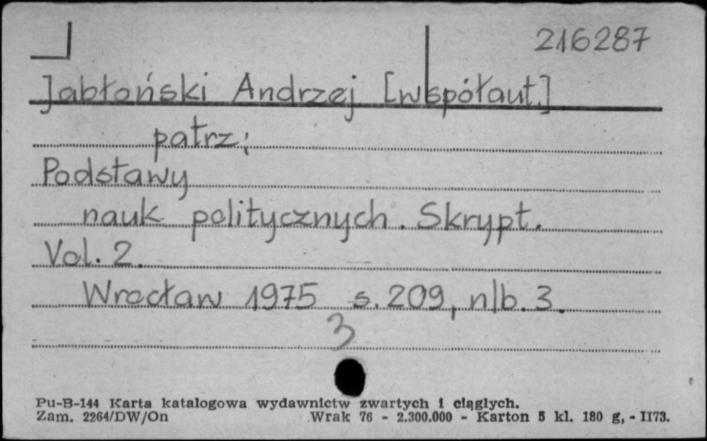 216287
Jabłoński Andrzej [współaut.]
patrz:
Podstawy
nauk politycznych. Skrypt.
Vol. 2.
Wrocław 1975 s. 209, nlb. 3.
3
Pu-B-144 Karta katalogowa wydawnictw zwartych i ciągłych.
Zam. 2264/DW/On Wrak 76 - 2.300.000 - Karton 5 kl. 180 g, - II73.